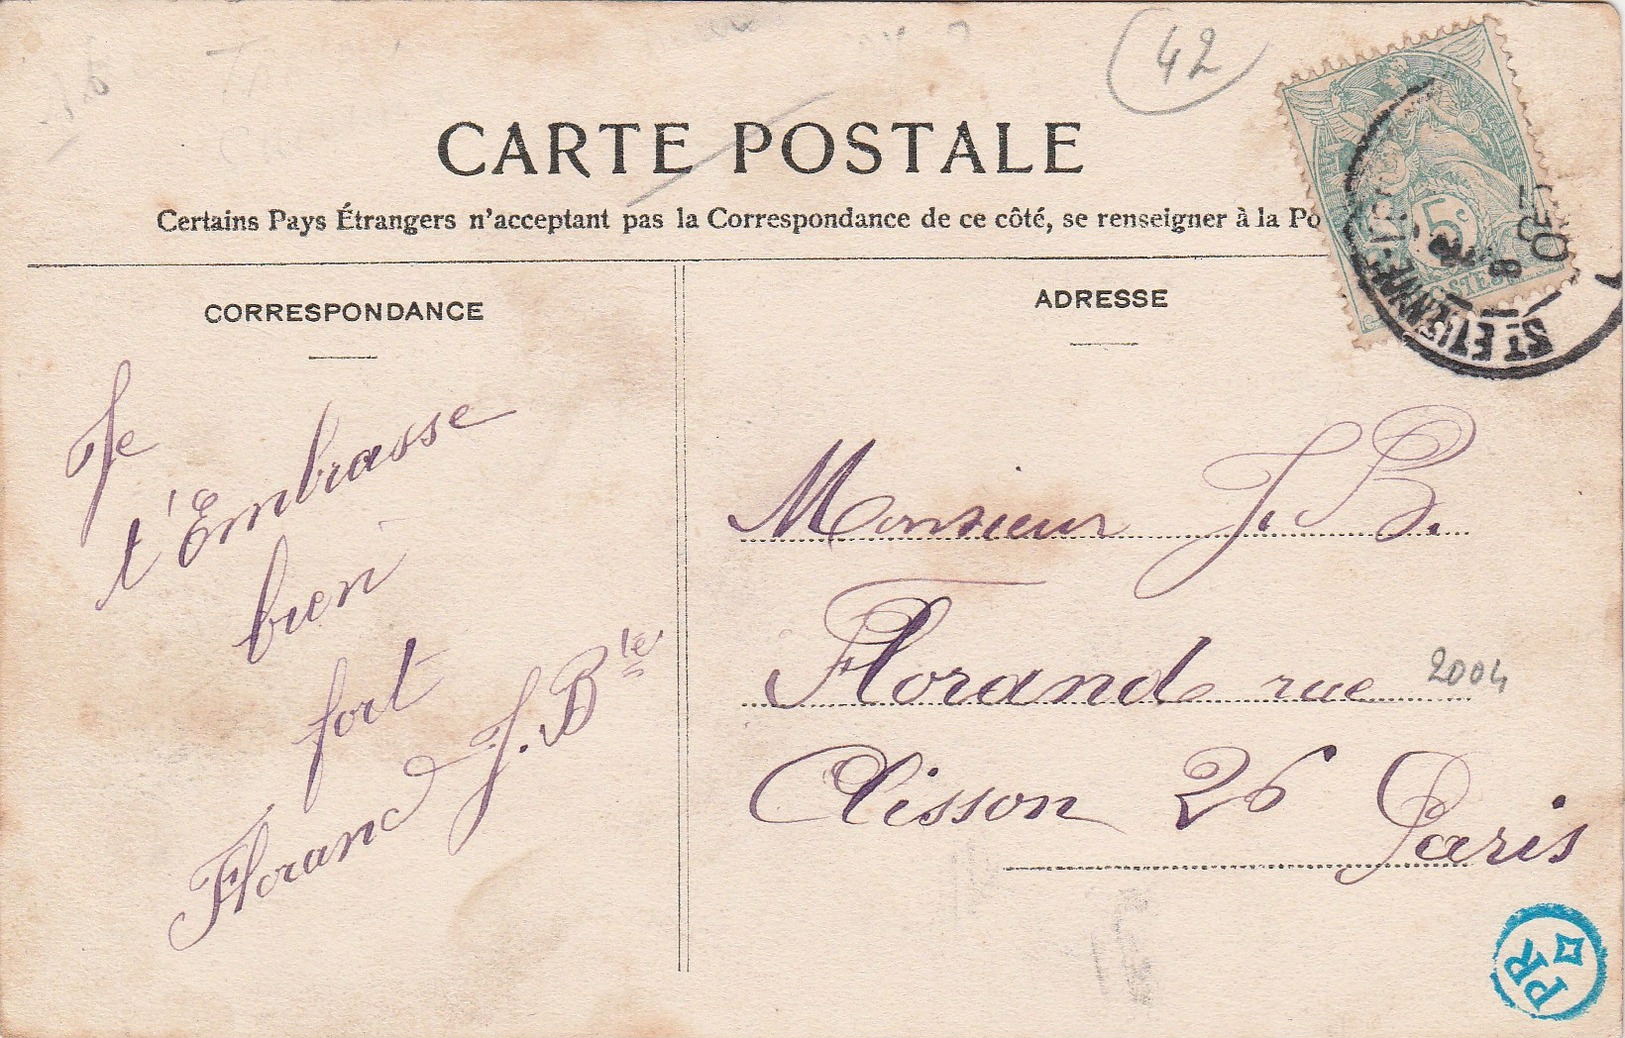 42
CARTE POSTALE
Certains Pays Étrangers n'acceptant pas la Correspondance de ce côté, se renseigner à la Po
CORRESPONDANCE
Je
t'Embrasse
bien
fort
Florand J. Bte
ADRESSE
Monsieur J. B.
Florand rue
2004
Clisson 26 Paris
5c
ST ETIENNE
PR